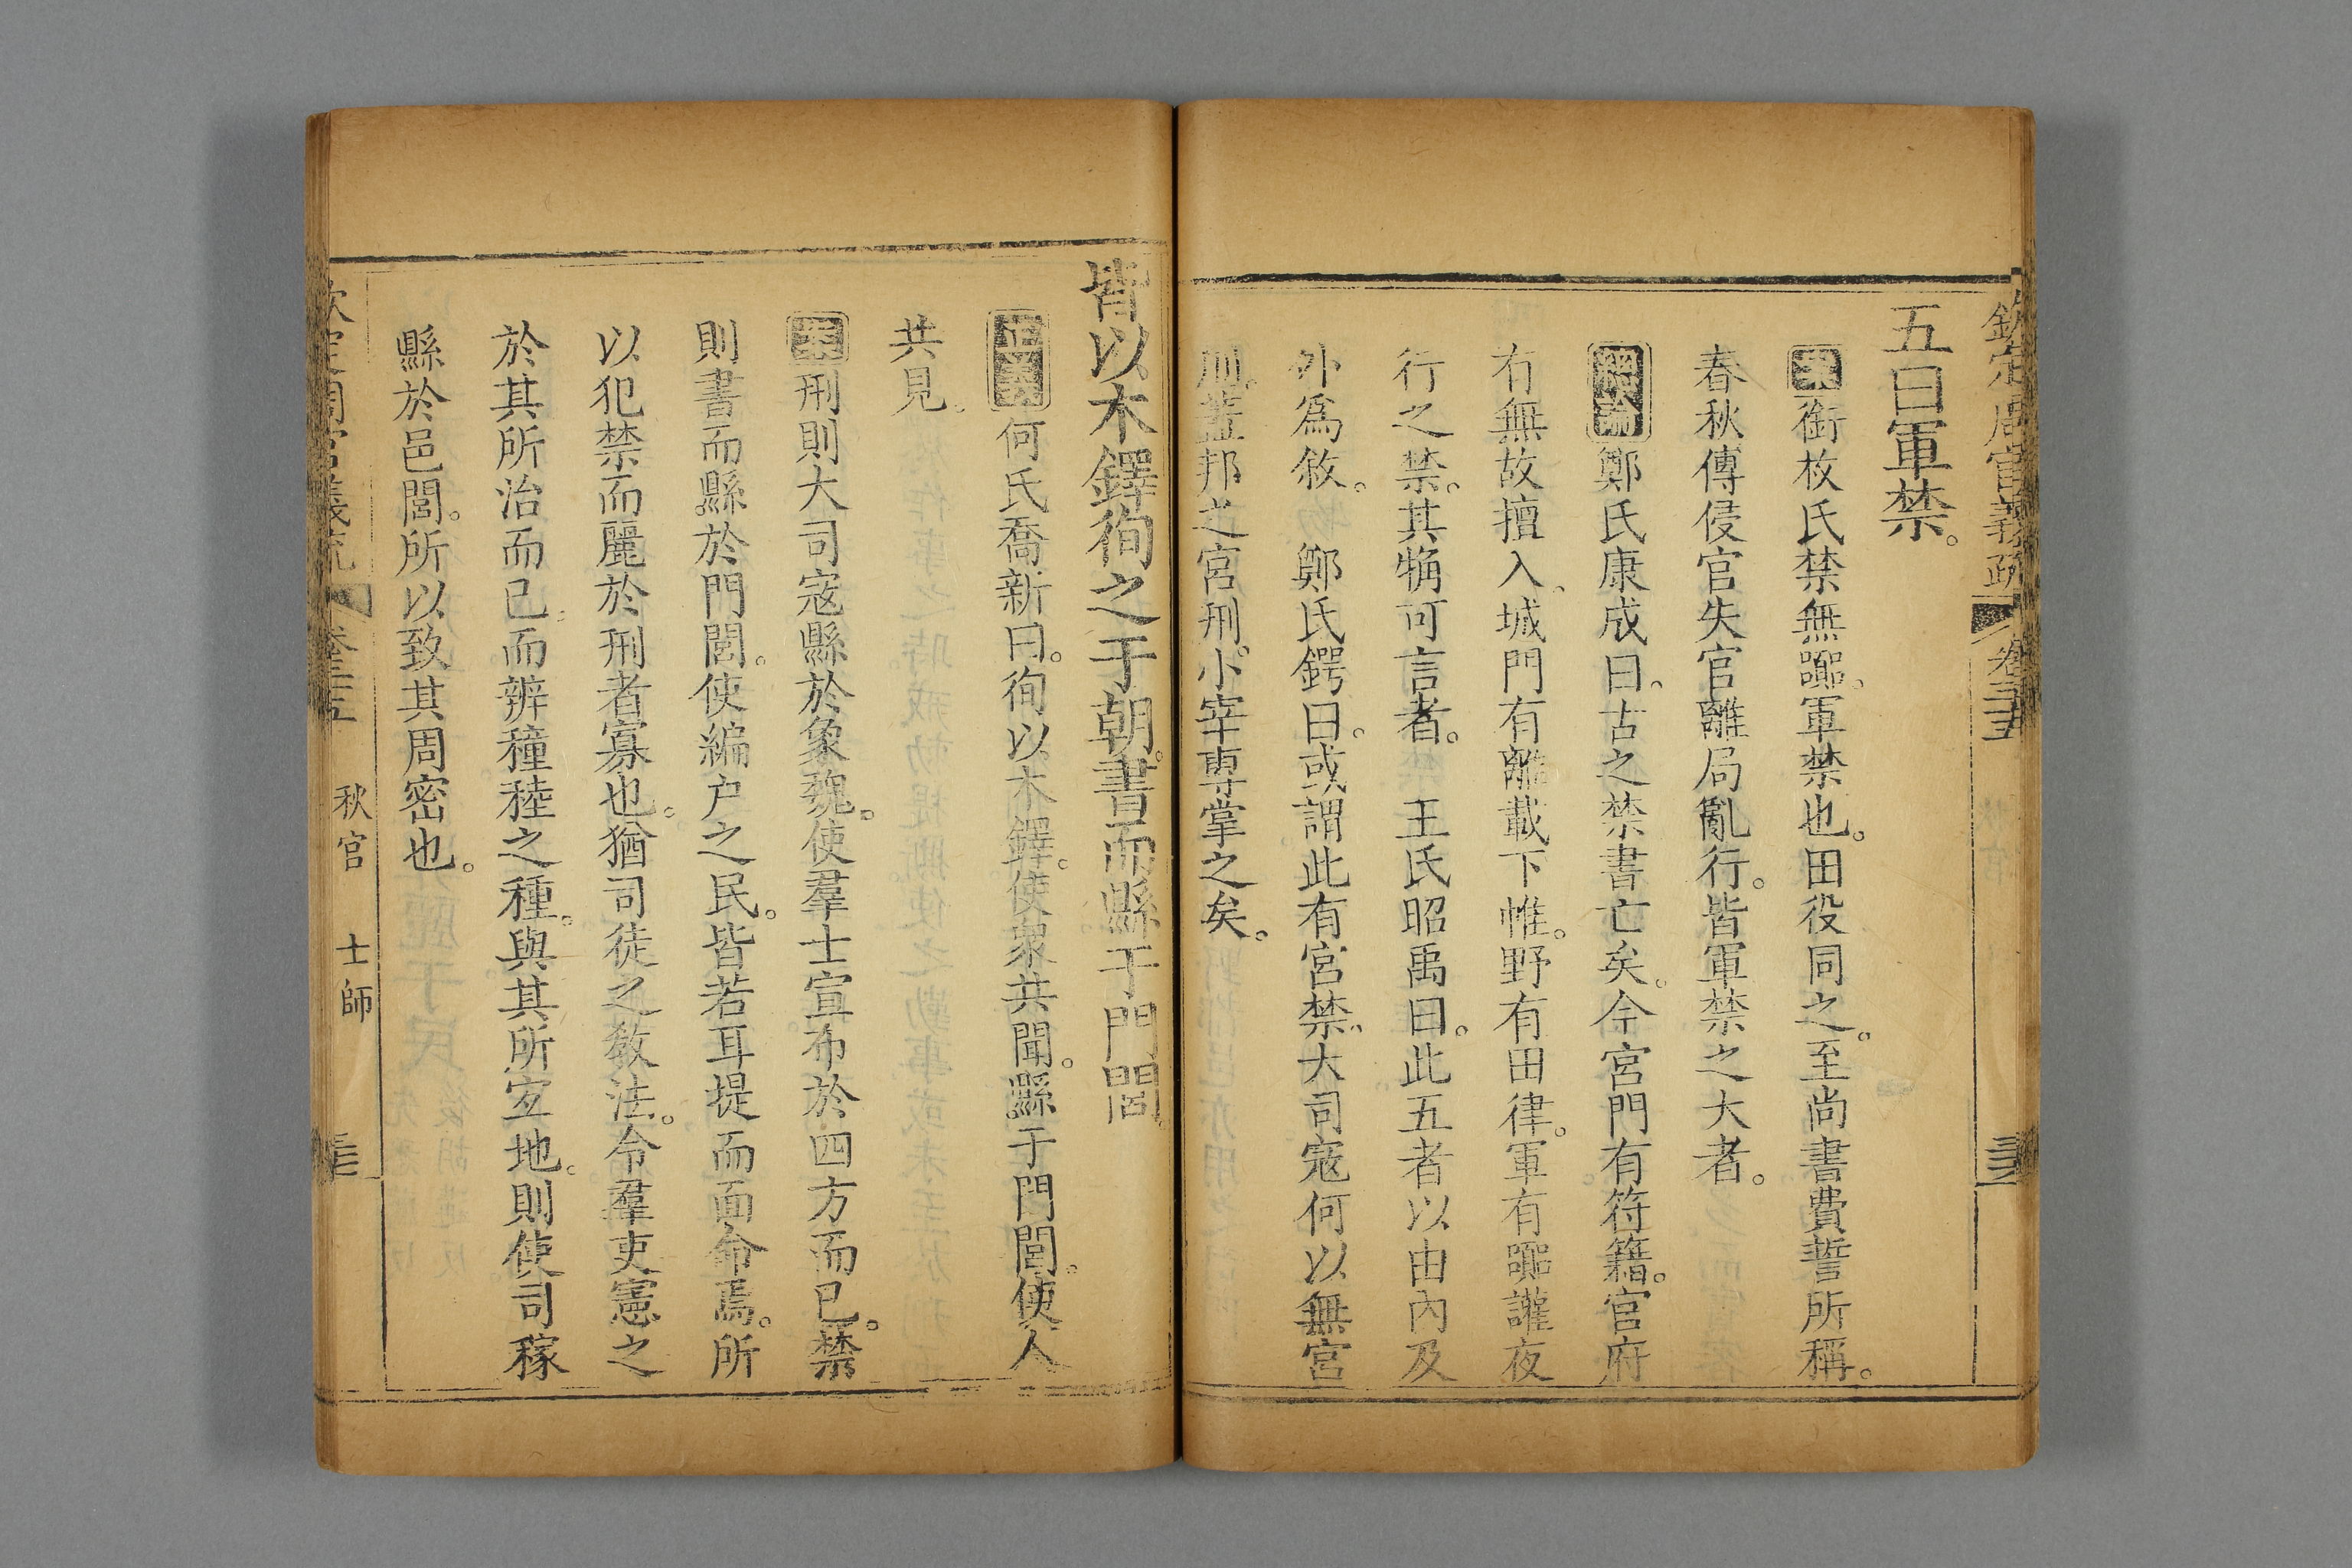 欽定周官義疏 卷三十五
五曰軍禁。
案銜枚氏禁無嘂。軍禁也。田役同之。至尚書費誓所稱。
春秋傳侵官失官離局亂行。皆軍禁之大者。
總論鄭氏康成曰。古之禁書亡矣。今宮門有符籍。官府
有無故擅入。城門有離載下帷。野有田律。軍有嘂讙夜
行之禁。其觕可言者。 王氏昭禹曰。此五者以由內及
外為敘。 鄭氏鍔曰。或謂此有宮禁。大司寇何以無宮
刑。蓋邦之宮刑。小宰專掌之矣。
皆以木鐸徇之于朝。書而縣于門閭。
正義何氏喬新曰。徇以木鐸。使眾共聞。縣于門閭。使人
共見。
案刑則大司寇縣於象魏。使羣士宣布於四方而已。禁
則書而縣於門閭。使編户之民。皆若耳提而面命焉。所
以犯禁而麗於刑者寡也。猶司徒之敎法。令羣吏憲之
於其所治而已。而辨穜稑之種。與其所宜地。則使司稼
縣於邑閭。所以致其周密也。
欽定周官義疏 卷三十五 秋官 士師